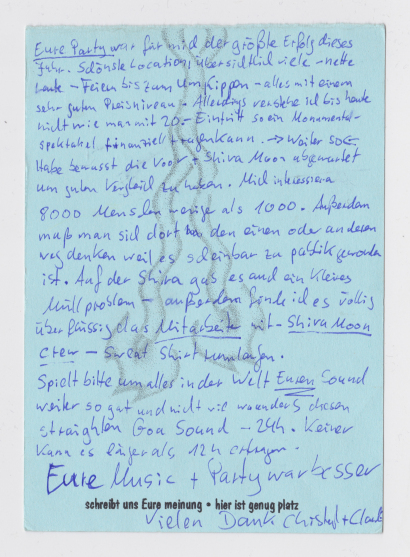 Eure Party war für mich der größte Erfolg dieses
Jahr. Schönste Location, übersichtlich viele - nette
Leute - Feiern bis zum Umkippen - alles mit einem
sehr guten Preisniveau - Allerdings verstehe ich bis heute
nicht wie man mit 20.- Eintritt so ein Monumental-
spektakel finanziell tragen kann. → Weiter so
Habe bewusst die Voov + Shiva Moon abgewartet
um guten Vergleich zu haben. Mich interessieren
8000 Menschen weniger als 1000. Außerdem
muß man sich dort bei den einen oder anderen
weg denken weil es scheinbar zu publik geworden
ist. Auf der Shiva gab es auch ein kleines
Müllproblem - außerdem finde ich es völlig
überflüssig das Mitarbeiter mit - Shiva Moon
Crew - Sweat Shirt rumlaufen.
Spielt bitte um alles in der Welt Euren Sound
weiter so gut und nicht wie woanders diesen
straighten Goa Sound - 24h. Keiner
kann es länger als 12h ertragen.
Eure Music + Party war besser
schreibt uns Eure meinung • hier ist genug platz
Vielen Dank